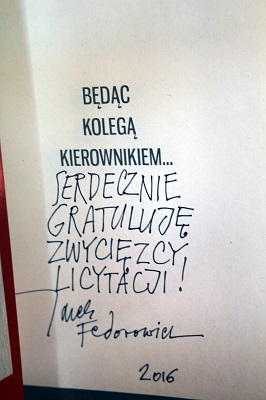 BĘDĄC
KOLEGĄ
KIEROWNIKIEM...
SERDECZNIE
GRATULUJĘ
ZWYCIĘZCY
LICYTACJI!
Jacek
Fedorowicz
2016